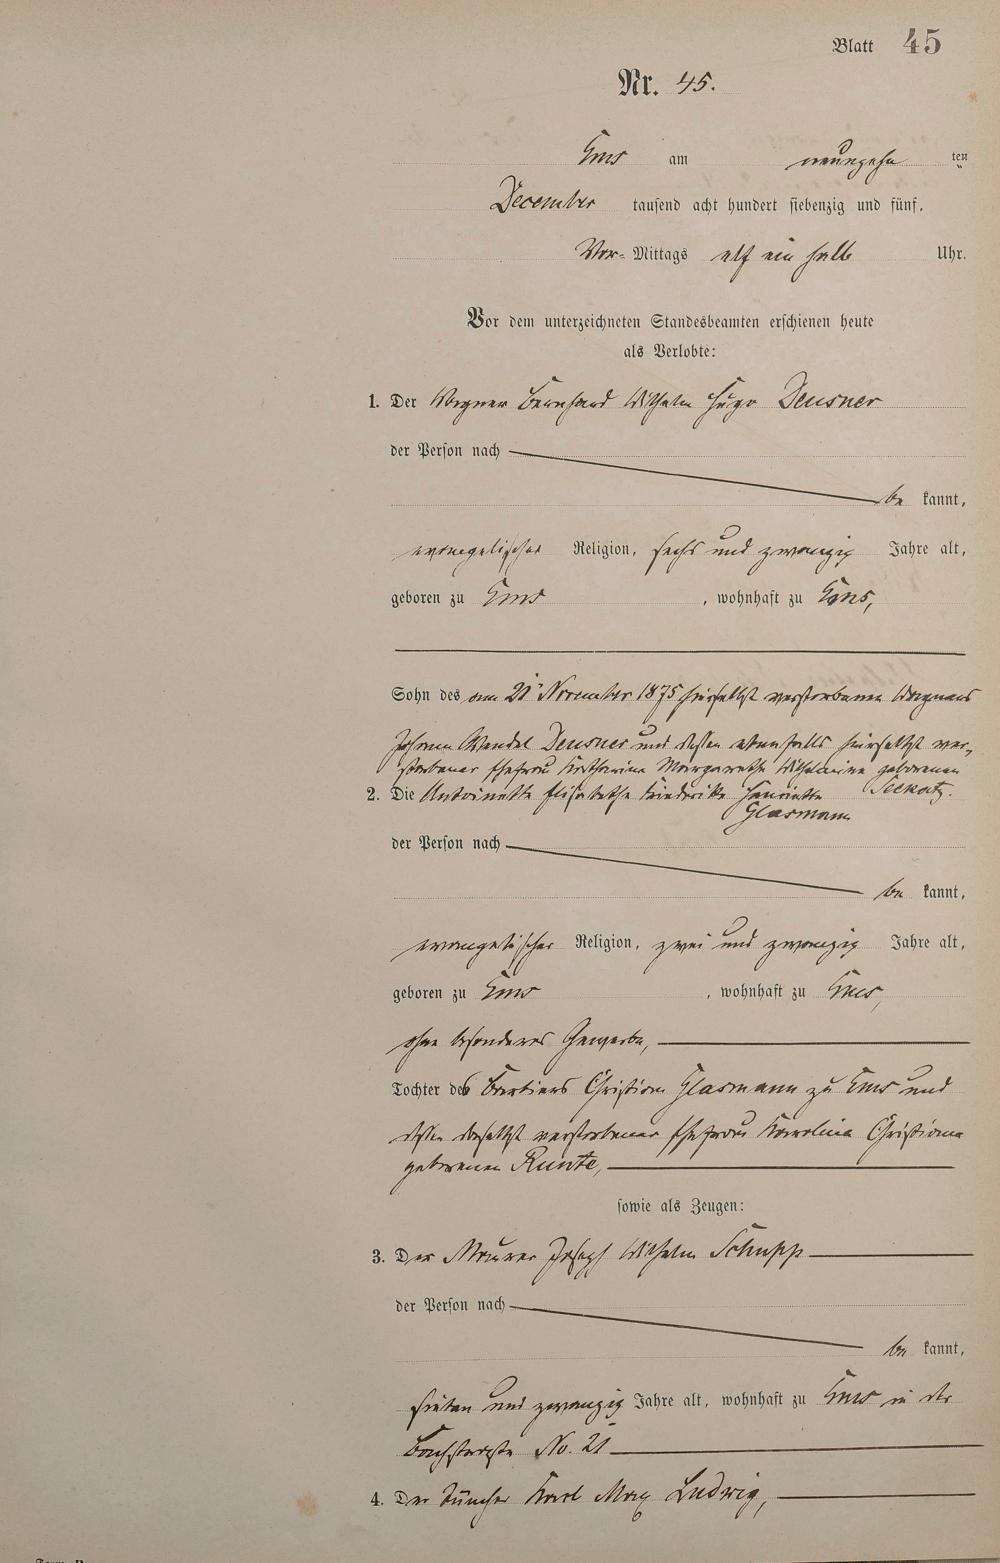 Blatt 45
Nr. 45.
Ems am neunzehn ten
December tausend acht hundert siebenzig und fünf,
Vor- Mittags elf ein halb Uhr.
Vor dem unterzeichneten Standesbeamten erschienen heute
als Verlobte:
1. Der Wagner Bernhard Wilhelm Hugo Deusner
der Person nach
be kannt,
evangelischer Religion, sechs und zwanzig Jahre alt,
geboren zu Ems, wohnhaft zu Ems,
Sohn des am 21 November 1875 hierselbst verstorbenen Wagners
Johann Wendel Deusner und dessen ebenfalls hierselbst ver-
storbener Ehefrau Katharine Margarethe Wilhelmine geborenen
Seekatz.
2. Die Antoinette Elisabethe Friederike Henriette
Glasmann
der Person nach
be kannt,
evangelischer Religion, zwei und zwanzig Jahre alt,
geboren zu Ems, wohnhaft zu Ems,
ohne besonderes Gewerbe,
Tochter des Barbiers Christian Glasmann zu Ems und
dessen daselbst verstorbener Ehefrau Karoline Christiane
geborenen Runte,
sowie als Zeugen:
3. Der Maurer Joseph Wilhelm Schupp
der Person nach
be kannt,
sieben und zwanzig Jahre alt, wohnhaft zu Ems in der
Bachstraße No. 21
4. Der Tüncher Karl Max Ludwig,